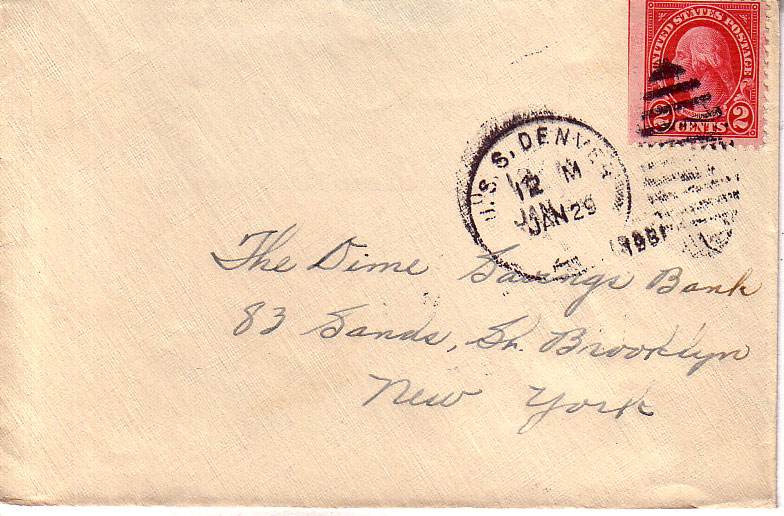 UNITED STATES POSTAGE
2 CENTS 2
U.S.S. DENVER
12 M
JAN
JAN 29
The Dime Savings Bank
83 Sands, St. Brooklyn
New York